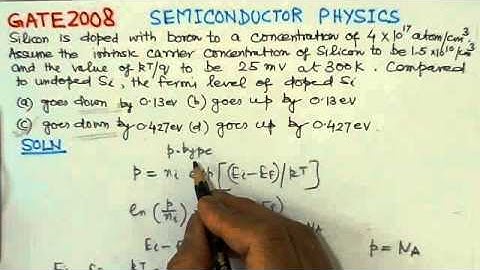 GATE2008 SEMICONDUCTOR PHYSICS
Silicon is doped with boron to a concentration of 4 × 10¹⁷ atom/cm³.
Assume the intrinsic carrier concentration of Silicon to be 1.5×10¹⁰/cm³
and the value of kT/q to be 25 mV at 300K. Compared
to undoped Si, the fermi level of doped Si
(a) goes down by 0.13eV (b) goes up by 0.13eV
(c) goes down by 0.427eV (d) goes up by 0.427eV.
SOLN p-type
p = nᵢ [(Eᵢ-E_F)/kT]
ln (p/nᵢ)
Eᵢ - p = N_A